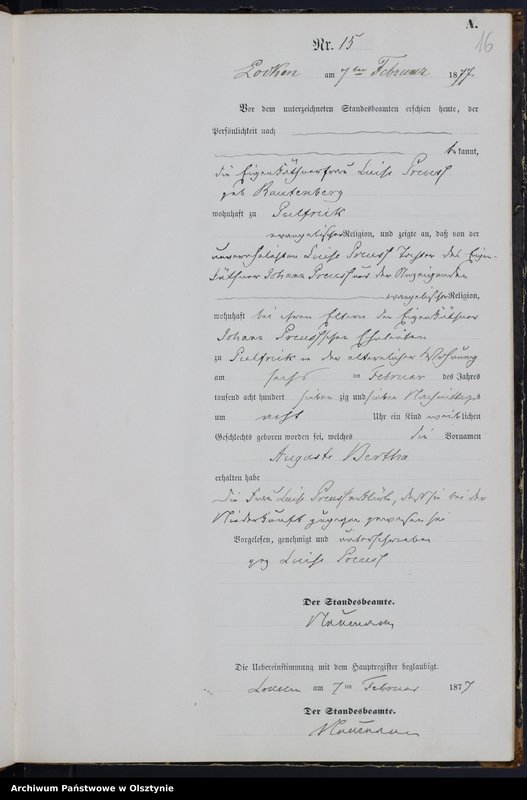 A.
16
Nr. 15
Locken am 7ten Februar 1877
Vor dem unterzeichneten Standesbeamten erschien heute, der
Persönlichkeit nach
bekannt,
die Eigenkäthnerfrau Luise Preuss
geb Rautenberg
wohnhaft zu Pulfnick
evangelischer Religion, und zeigte an, daß von der
unverehelichten Luise Preuss Tochter des Eigen-
käthner Johann Preuss und der Anzeigenden
evangelischer Religion,
wohnhaft bei ihren Eltern den Eigenkäthner
Johann Preuss'schen Eheleuten
zu Pulfnick in der elterlichen Wohnung
am sechs ten Februar des Jahres
tausend acht hundert sieben zig und sieben Nachmittags
um acht Uhr ein Kind weiblichen
Geschlechts geboren worden sei, welches die Vornamen
Auguste Bertha
erhalten habe
Die Frau Luise Preuss erklärte, daß sie bei der
Niederkunft zugegen gewesen sei
Vorgelesen, genehmigt und unterschrieben
gez Luise Preuss
Der Standesbeamte.
Die Uebereinstimmung mit dem Hauptregister beglaubigt.
Locken am 7 ten Februar 1877
Der Standesbeamte.
Archiwum Państwowe w Olsztynie